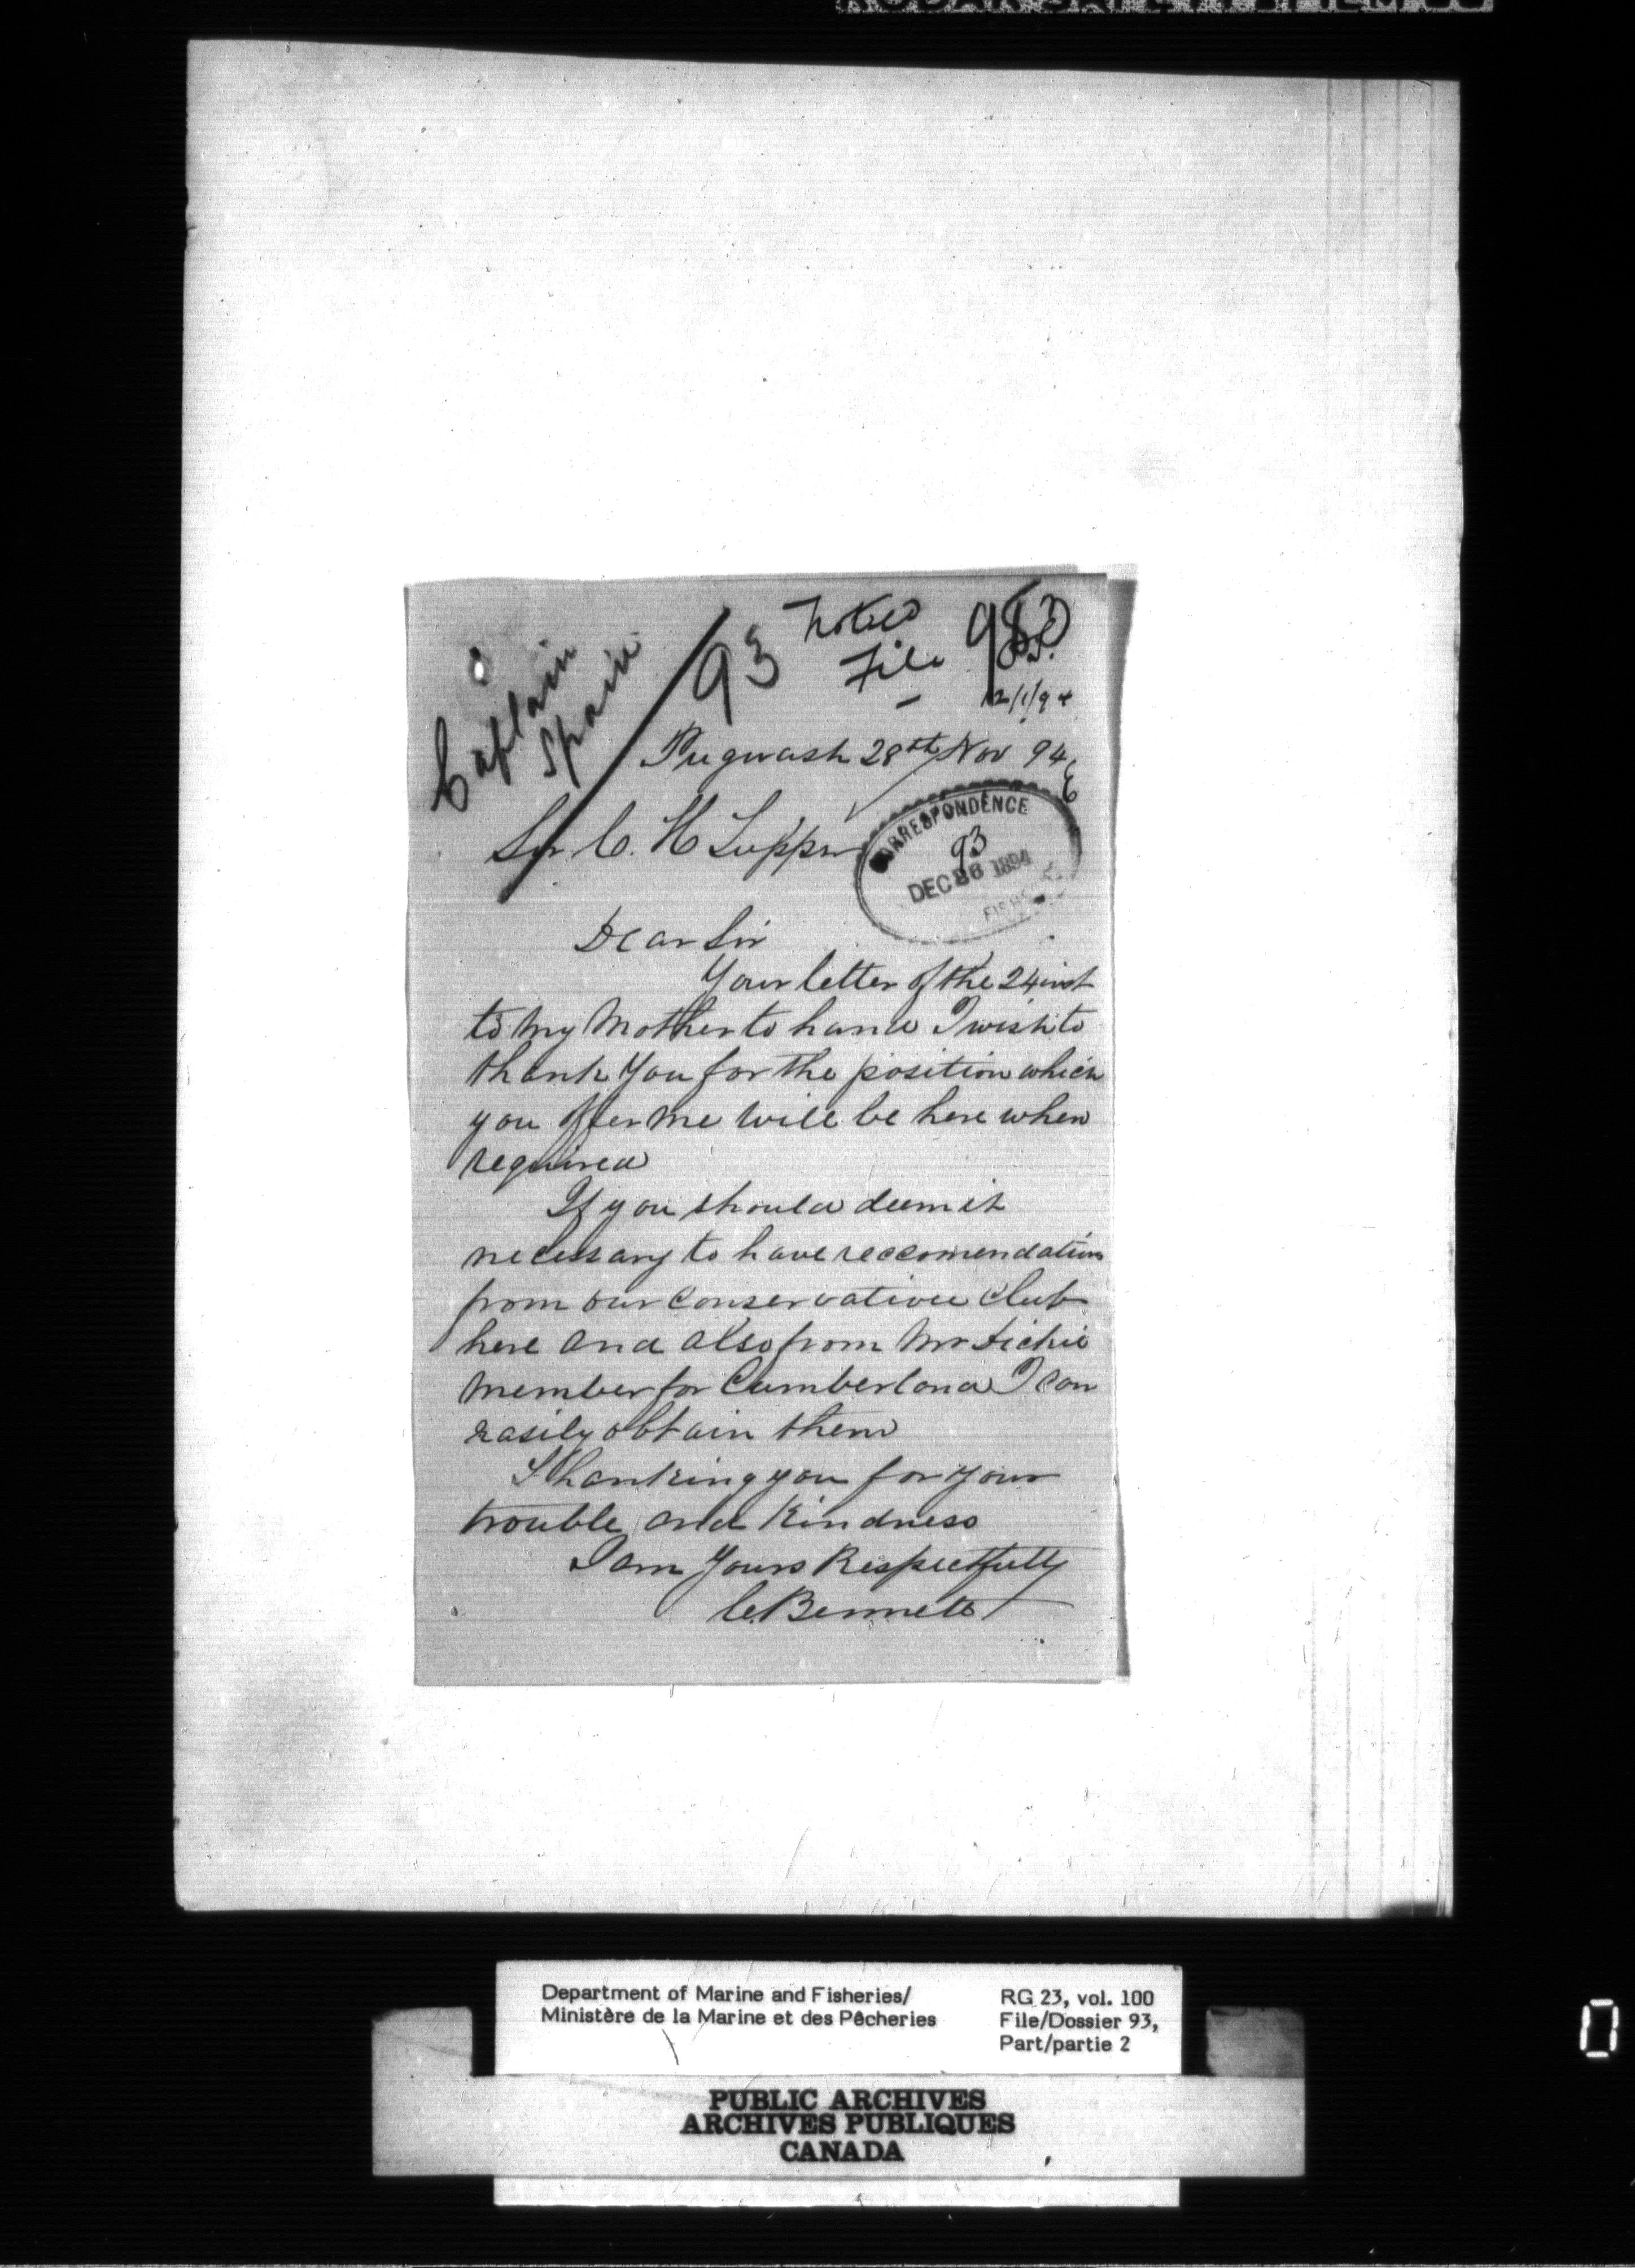 Captain
Spain
93
Noted
File
Pugwash 28th Nov 94
Sir C. H Tupper
CORRESPONDENCE
93
DEC 26 1894
Dear Sir
Your letter of the 24 inst
to my Mother to hand I wish to
thank you for the position which
you offer me will be here when
required
If you should deem it
necessary to have reccomendation
from our Conservative Club
here and also from Mr Dickie
Member for Cumberland I can
easily obtain them
Thanking you for your
trouble and kindness
I am Yours Respectfully
C. Bennett
Department of Marine and Fisheries/
Ministère de la Marine et des Pêcheries
RG 23, vol. 100
File/Dossier 93,
Part/partie 2
PUBLIC ARCHIVES
ARCHIVES PUBLIQUES
CANADA